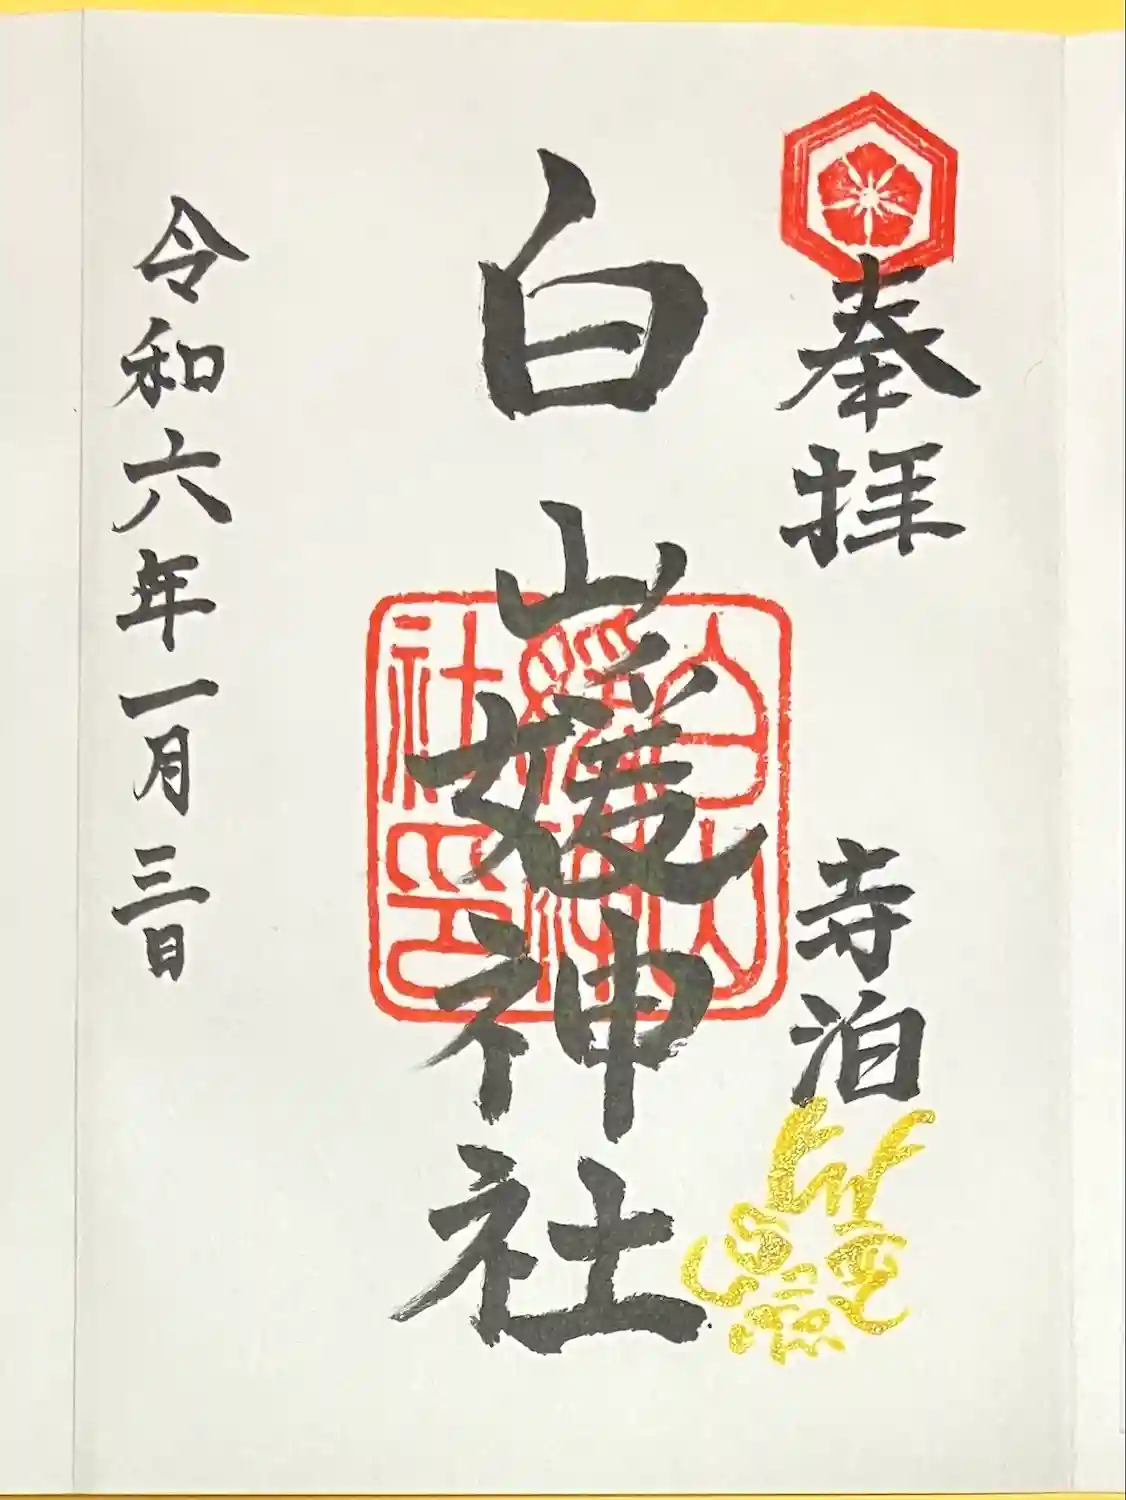 奉拝
寺泊
白山媛神社
白山媛神社印
令和六年一月三日